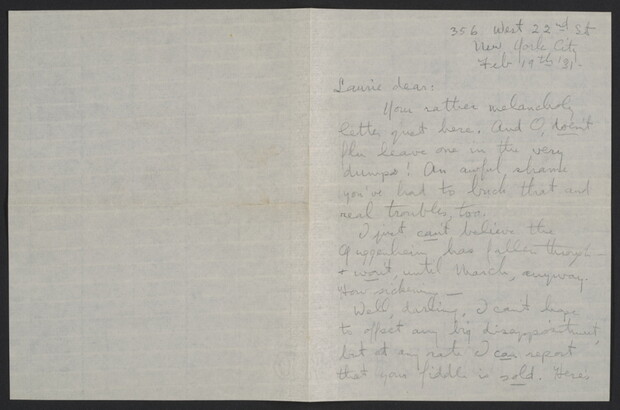 356 West 22nd St
New York City
Feb 19th '31.
Laurie dear:
Your rather melancholy
letter just here. And O, doesn't
flu leave one in the very
dumps! An awful shame
you've had to buck that and
real troubles, too.
I just can't believe the
Guggenheim has fallen through—
+ won't, until March, anyway.
How sickening—
Well, darling, I can't hope
to offset any big disappointment,
but at any rate I can report
that your fiddle is sold. Here's